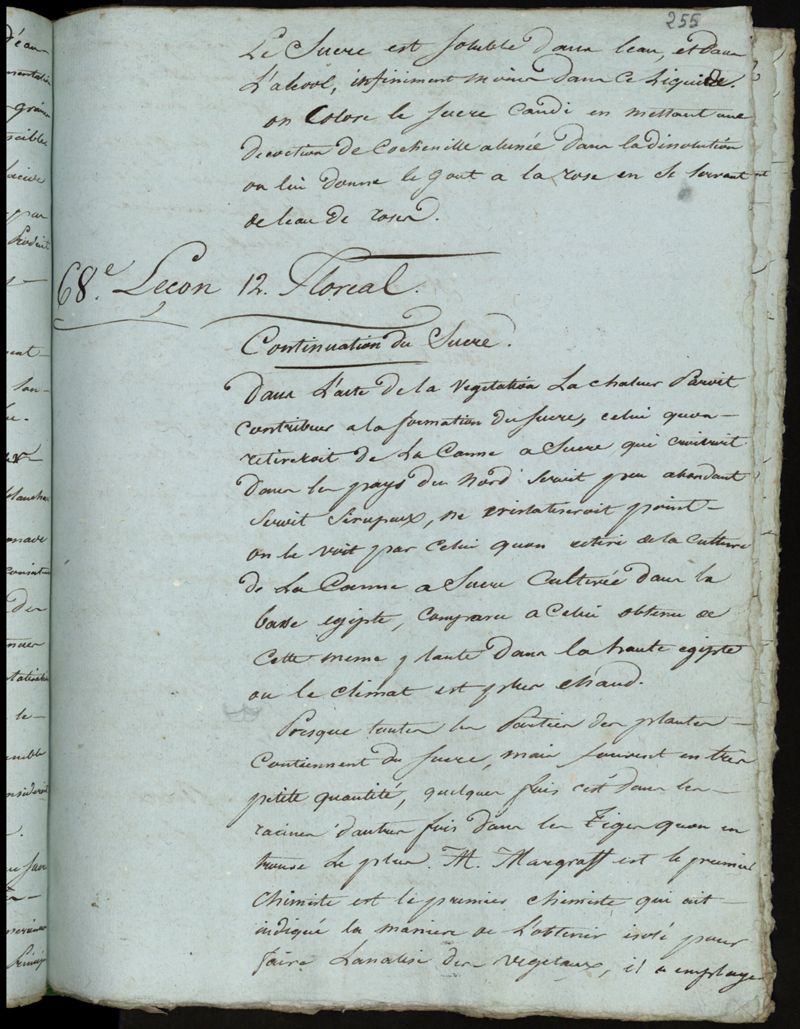 255
Le Sucre est soluble dans leau, et dans
L'alcool, infiniment moins dans ce Liquide.
on Colore le sucre candi en mettant une
decoction de Cochenille alunée dans la dissolution
on lui donne le gout a la rose en se servant
de leau de roses.
68.e Lecon 12. Floreal.
Continuation du Sucre.
Dans L'acte de la vegetation La chaleur Paroit
contribuer a la formation du sucre, celui quon
retireroit de La Canne a Sucre qui croitroit
dans les pays du Nord seroit peu abondant
seroit sirupeux, ne cristaliseroit point
on le voit par celui quon retire de la culture
de La Canne a Sucre Cultivée dans la
basse egipte, comparée a Celui obtenu de
cette meme plante dans la haute egipte
ou le climat est plus chaud.
Presque toutes les Parties des plantes
Contiennent du sucre, mais souvent en très
petite quantité, quelques fois c'est dans les
racines d'autres fois dans les Tiges quon en
trouve Le plus. M. Margraff est le premier
chimiste est le premier chimiste qui ait
indiqué la maniere de L'obtenir isolé pour
faire Lanalise des vegetaux, il a employé